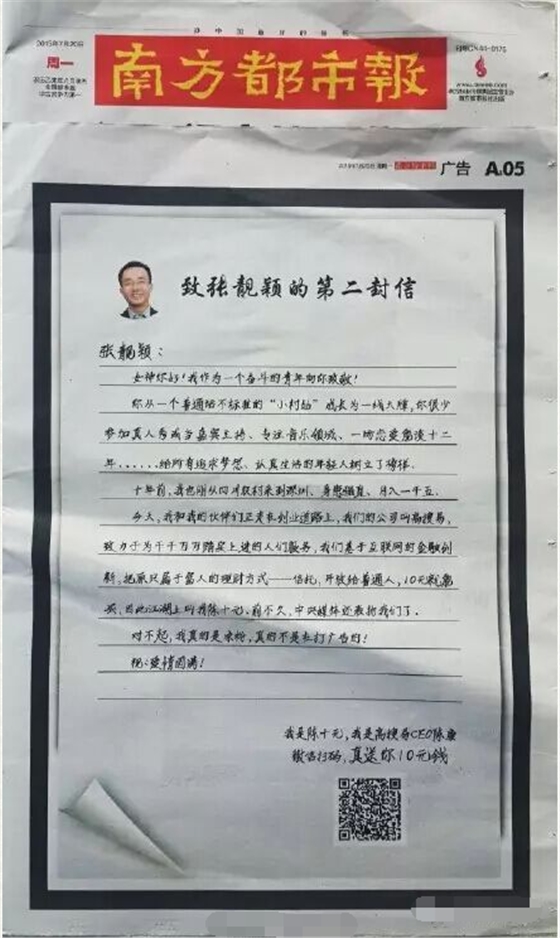 2015年7月20日
周一
南方都市報
广告 A05
致张靓颖的第二封信
张靓颖：
女神你好！我作为一个奋斗的青年向你致敬！
你从一个普通话不标准的“小村姑”成长为一线大牌，你很少
参加真人秀或当嘉宾主持、专注音乐领域、一场恋爱爱谈十二
年......给所有追求梦想、认真生活的年轻人树立了榜样。
十年前，我也刚从四川农村来到深圳、身患残直、月入一千五。
今天，我和我的伙伴们正走在创业道路上，我们的公司叫高搜易，
致力于为千千万万踏实上进的人们服务，我们基于互联网的金融创
新，把原只属于富人的理财方式——信托，开放给普通人，10元就能
买，因此江湖上叫我陈十元，前不久，中央媒体还表扬我们了。
对不起，我真的是求粉，真的不是在打广告的！
祝：爱情圆满！
我是陈十元，我是高搜易CEO陈康
微信扫码，真送你10元钱